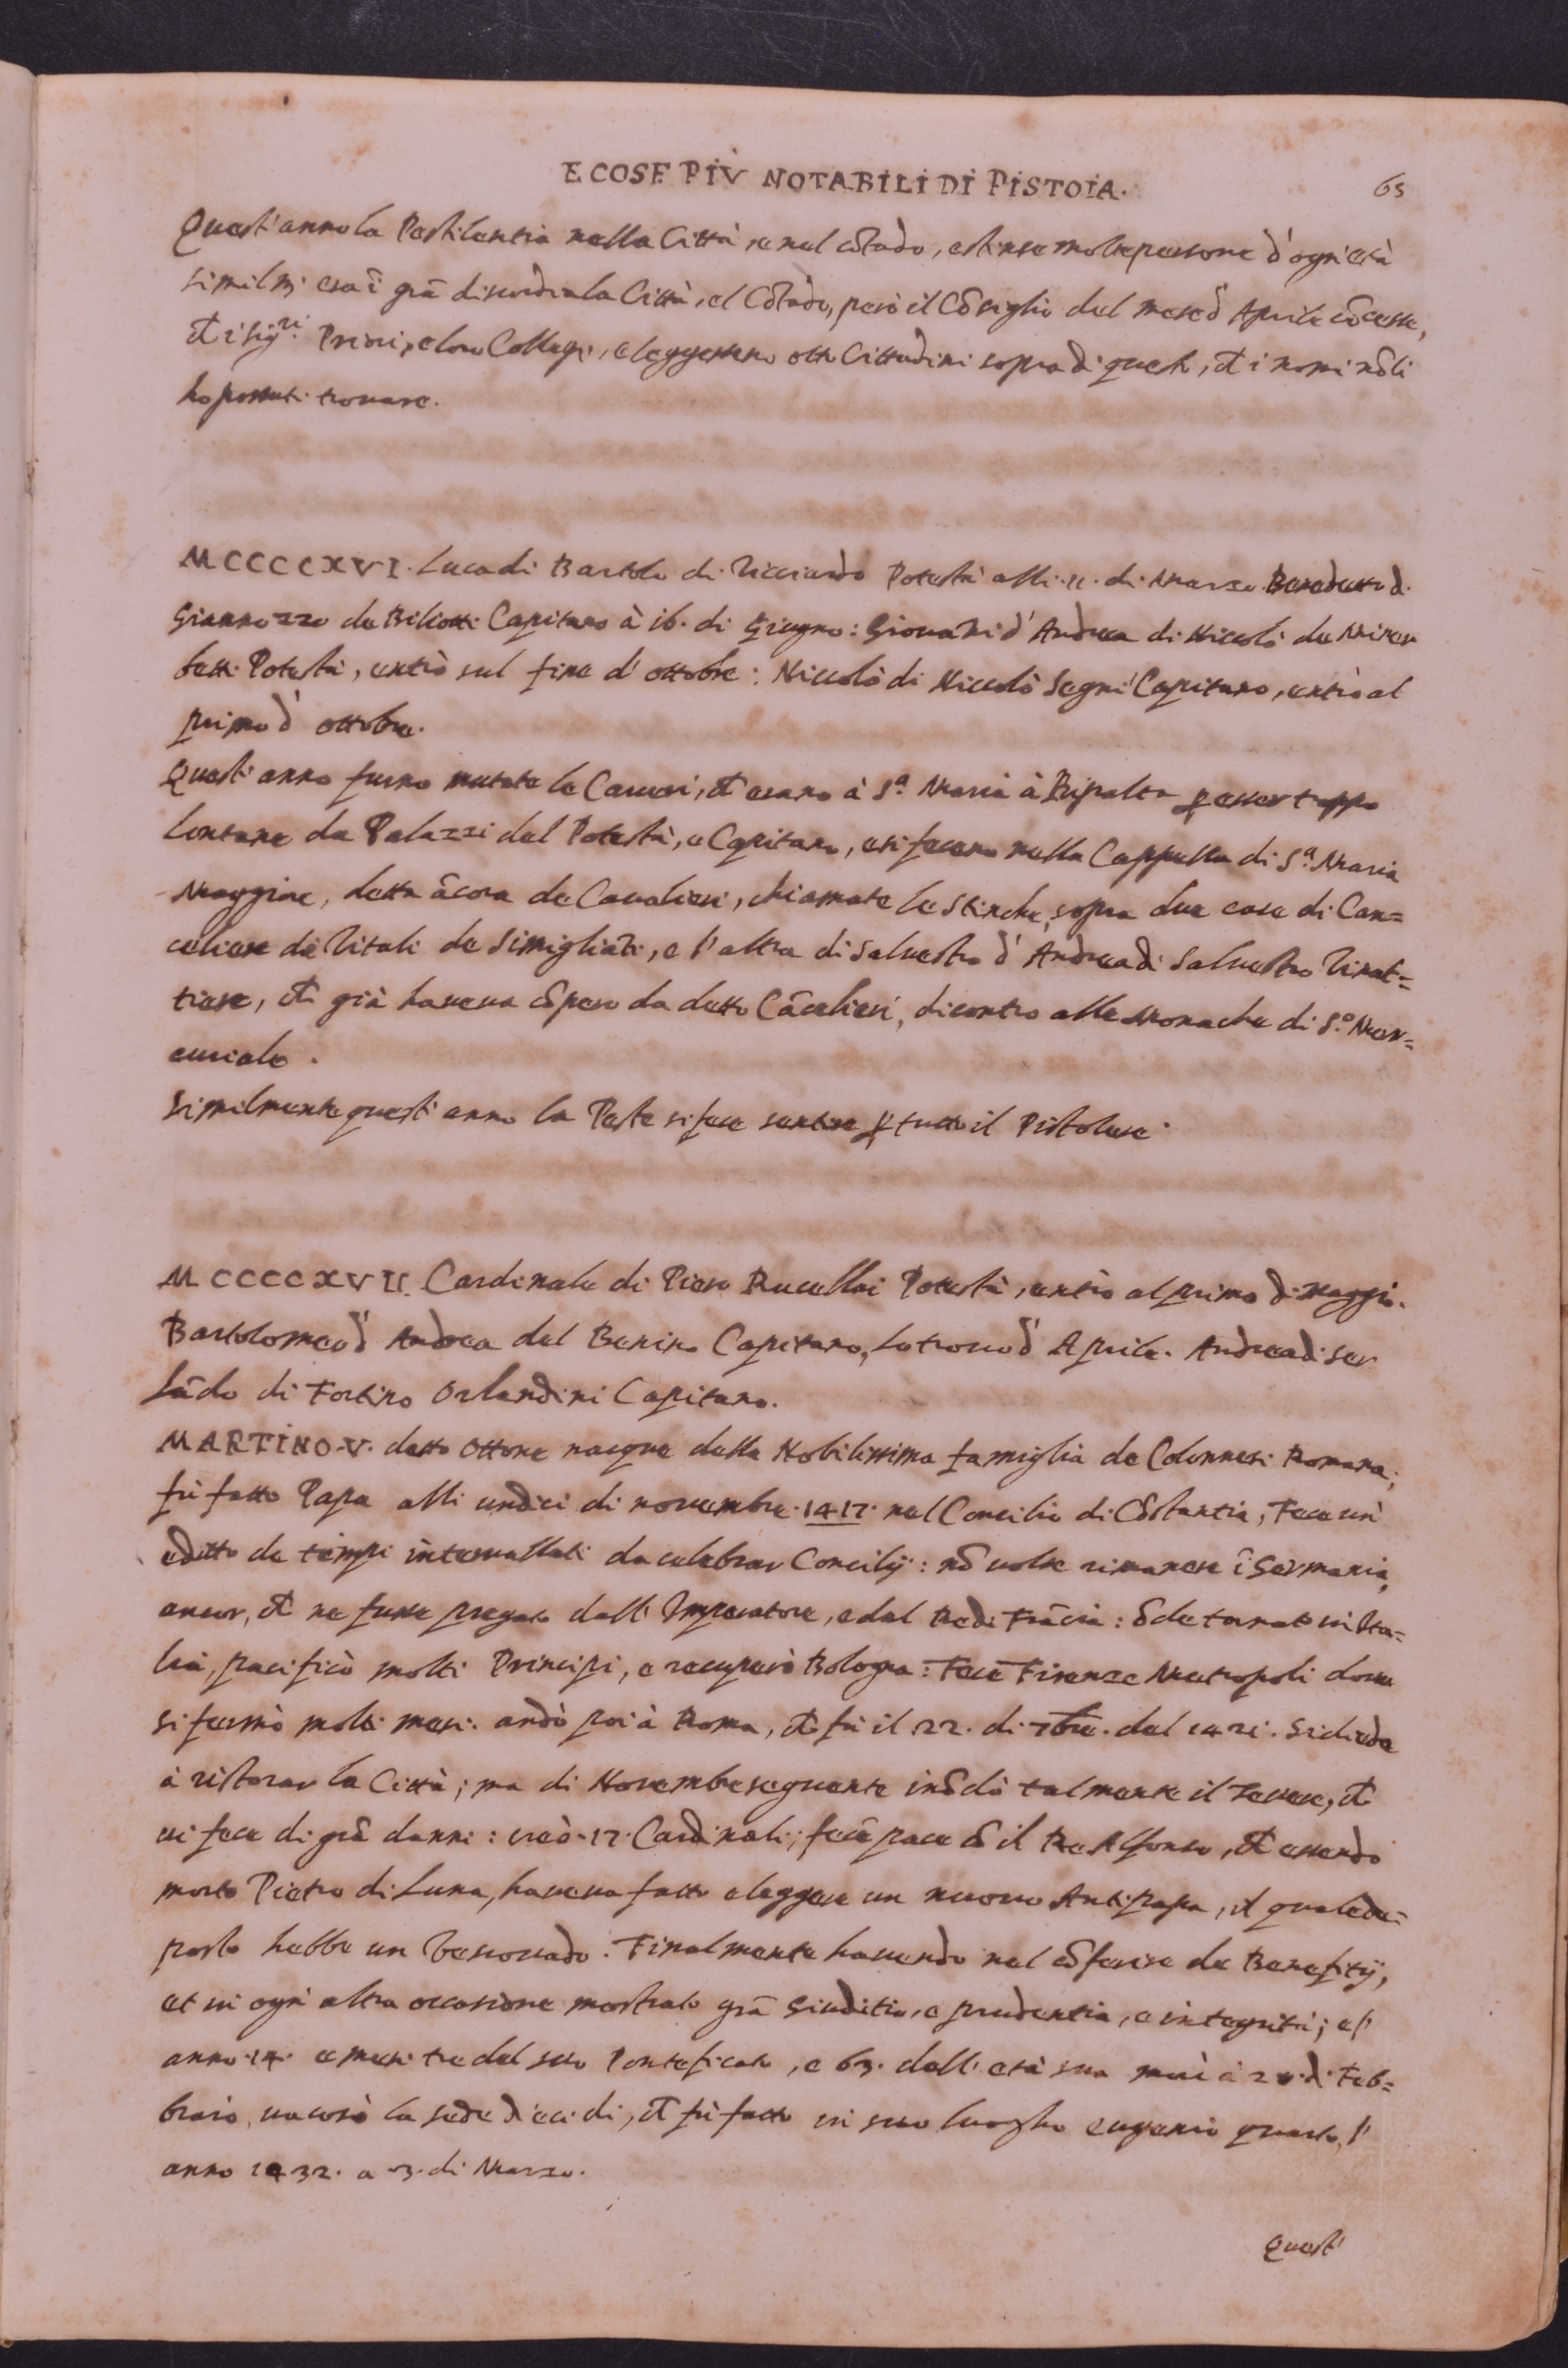 E COSE PIÙ NOTABILI DI PISTOIA.
65
Quest'anno la Pestilentia nella Città e nel cōtado, estinse molte persone d'ogni età
similm. era ī grā discordia la Città, el Cōtado, però il Cōsiglio del mese d'Aprile cōcesse,
et i sig.ri Priori, e loro Collegi, eleggessero otto Cittadini sopra di questi, et i nomi nō li
ho possuti trovare.
MCCCCXVI. Luca di Bartolo di Ricciardo Potestà alli 11. di Marzo. Benedetto d.
Giannozzo de Biliotti Capitano à 16. di Giugno: Giovāni d'Andrea di Niccolò de Miner
betti Potestà, entrò sul fine d'ottobre: Niccolò di Niccolò Segni Capitano, entrò al
primo d'ottobre.
Quest'anno furno mutate le Carceri, et erano à S.a Maria à Ripalta ꝑ esser troppo
lontane da Palazzi del Potestà, e Capitano, e si fecero nella Cappella di S.a Maria
Maggiore, detta ācora de Cavalieri, chiamate le Stinche, sopra due case di Can=
celiere di Vitali de Simigliāti, e l'altra di Salvestro d'Andrea di Salvestro Vinat=
tiere, et già haveva cōpero da detto Cācelieri, dicontro alle Monache di S.o Mer=
curiale.
Similmente quest'anno la Peste si fece sentire ꝑ tutto il Pistolese.
MCCCCXVII. Cardinale di Piero Rucellai Potestà, entrò al primo di Maggio.
Bartolomeo d'Andrea del Benino Capitano, lo trovo d'Aprile. Andrea di ser
Lādo di Fortino Orlandini Capitano.
MARTINO.V. detto Ottone nacque della Nobilissima famiglia de Colonnesi Romana;
fù fatto Papa alli undici di novembre 1417. nel Concilio di Cōstantia; Fece un
editto de tempi intervallati da celebrar Concilij: nō volse rimanere ī Germania,
ancor, et ne fusse pregato dall'Imperatore, e dal Re di Frācia: ōde tornato in Ita=
lia, pacificò molti Principi, e recuperò Bologna: Fece Firenze Metropoli dove
si fermò molti mesi. andò poi à Roma, et fù il 22. di 7bre. del 1421. Si diede
à ristorar la Città; ma di Novembre seguente inōdò talmente il Tevere, et
vi fece di grā danni: creò 17. Cardinali; fece pace cō il Re Alfonso, et essendo
morto Pietro di Luna, haveva fatto eleggere un nuovo Antipapa, il quale de=
posto hebbe un Vescovado. Finalmente havendo nel cōferire de Benefitij,
et in ogni altra occasione mostrato grā Giuditio, e prudentia, e integrità; e l'
anno 14. e mesi tre del suo Pontificato, e 63. dell'età sua morì à 20 di Feb=
braio, vacosò la sede dieci dì, et fù fatto in suo luogho Eugenio quarto, l'
anno 1432. a 3. di Marzo.
Quest'